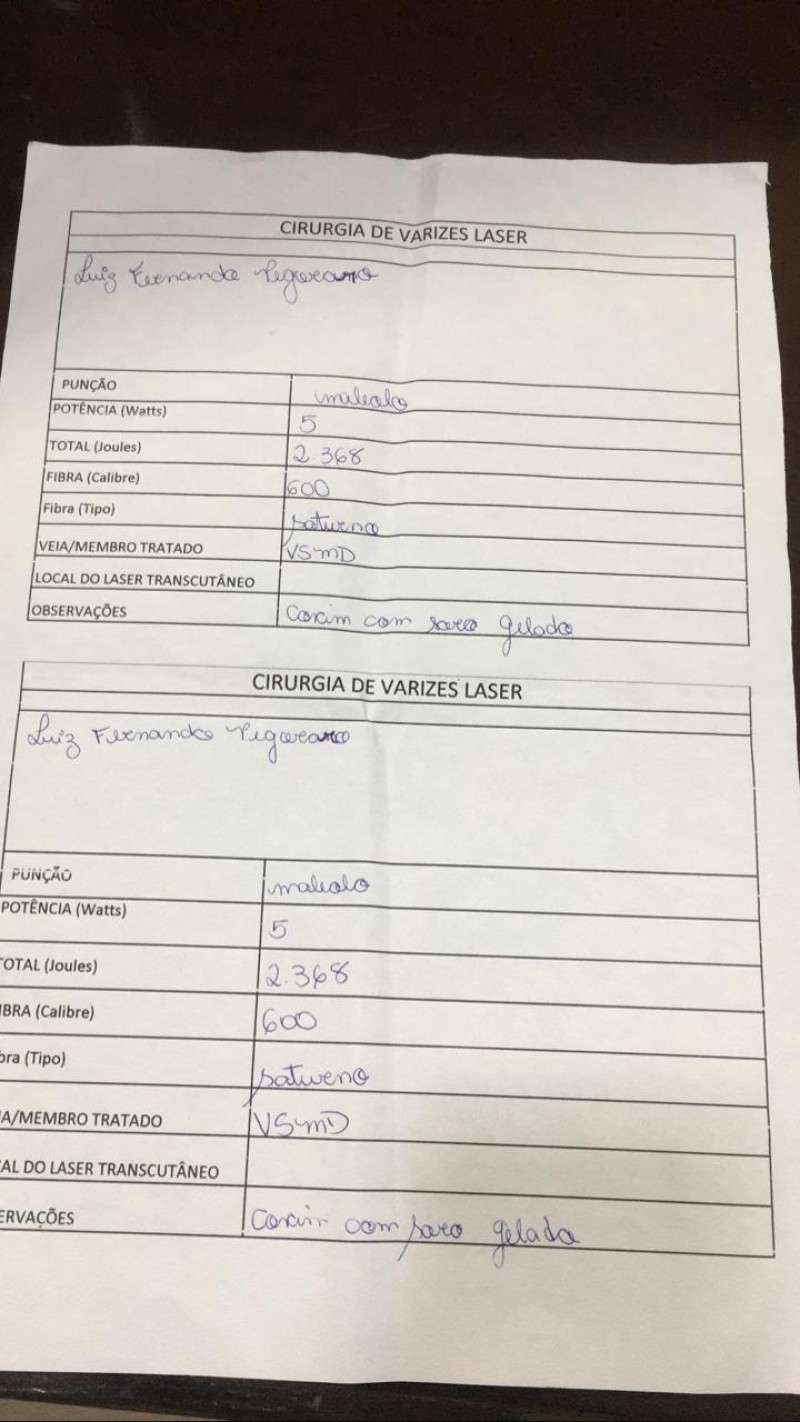 CIRURGIA DE VARIZES LASER
Luiz Fernando
PUNÇÃO maleolo
POTÊNCIA (Watts) 5
TOTAL (Joules) 2.368
FIBRA (Calibre) 600
Fibra (Tipo) satureno
VEIA/MEMBRO TRATADO VSMD
LOCAL DO LASER TRANSCUTÂNEO
OBSERVAÇÕES com soro gelado
CIRURGIA DE VARIZES LASER
Luiz Fernando
PUNÇÃO maleolo
POTÊNCIA (Watts) 5
TOTAL (Joules) 2.368
IBRA (Calibre) 600
bra (Tipo) satureno
IA/MEMBRO TRATADO VSMD
CAL DO LASER TRANSCUTÂNEO
ERVAÇÕES com soro gelada